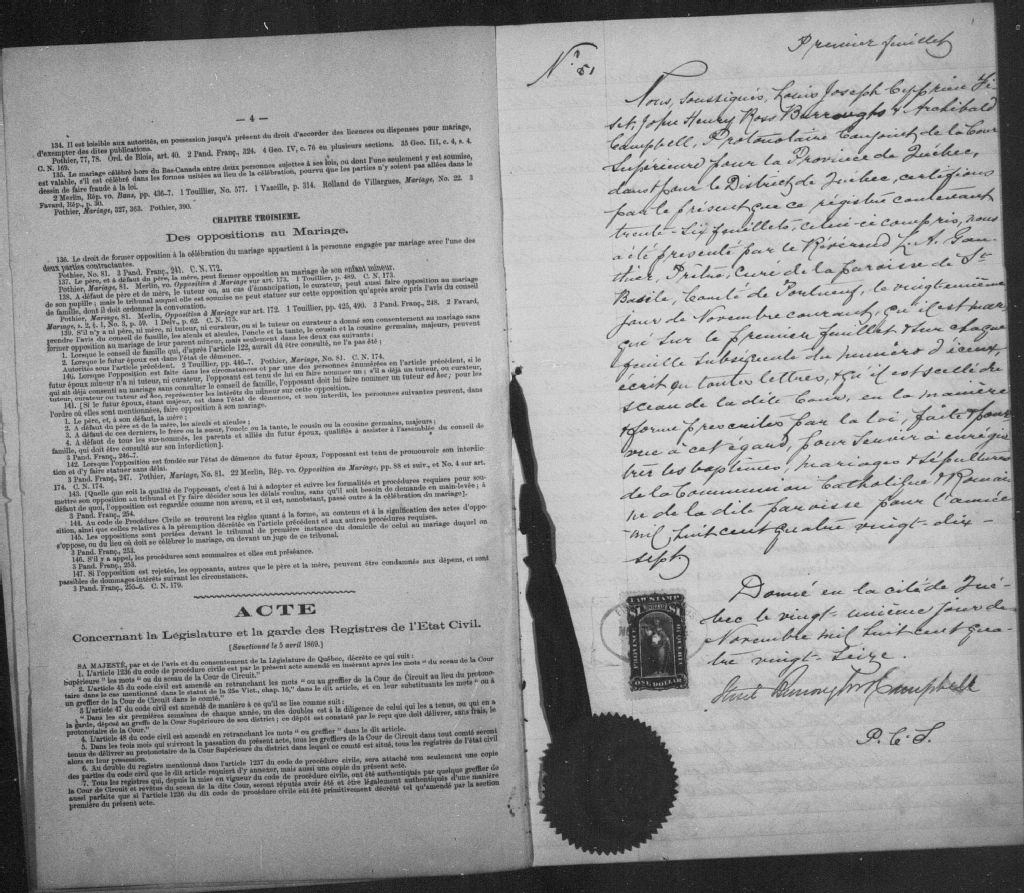 — 4 —
134. Il est loisible aux autorités, en possession jusqu'à présent du droit d'accorder des licences ou dispenses pour mariage,
d'exempter des dites publications.
Pothier, 77, 78. Ord. de Blois, art. 40. 2 Pand. Franç., 324. 4 Geo. IV, c. 76 en plusieurs sections. 35 Geo. III, c. 4, s. 4.
C. N. 169.
135. Le mariage célébré hors du Bas-Canada entre deux personnes sujettes à ses lois, ou dont l'une seulement y est soumise,
est valable, s'il est célébré dans les formes usitées au lieu de la célébration, pourvu que les parties n'y soient pas allées dans le
dessin de faire fraude à la loi.
2 Merlin, Rép. vo. Bans, pp. 436-7. 1 Touillier, No. 577. 1 Vazeille, p. 314. Rolland de Villargues, Mariage, No. 22. 3
Favard, Rép., p. 30.
Pothier, Mariage, 327, 363. Pothier, 390.
CHAPITRE TROISIEME.
Des oppositions au Mariage.
136. Le droit de former opposition à la célébration du mariage appartient à la personne engagée par mariage avec l'une des
deux parties contractantes.
Pothier, No. 81. 3 Pand. Franç., 241. C. N. 172.
137. Le père, et à défaut du père, la mère, peut former opposition au mariage de son enfant mineur.
Pothier, Mariage, 81. Merlin, vo. Opposition à Mariage sur art. 173. 1 Touillier, p. 489. C. N. 173.
138. A défaut de père et de mère, le tuteur ou, au cas d'émancipation, le curateur, peut aussi faire opposition au mariage
de son pupille; mais le tribunal auquel elle est soumise ne peut statuer sur cette opposition qu'après avoir pris l'avis du conseil
de famille, dont il doit ordonner la convocation.
Pothier, Mariage, 81. Merlin, Opposition à Mariage sur art. 172. 1 Touillier, pp. 425, 490. 3 Pand. Franç., 248. 2 Favard,
Mariage, s. 2, § 1, No. 3, p. 59. 1 Delv., p. 62. C. N. 175.
139. S'il n'y a ni père, ni mère, ni tuteur, ni curateur, ou si le tuteur ou curateur a donné son consentement au mariage sans
prendre l'avis du conseil de famille, les aïeuls et aïeules, l'oncle et la tante, le cousin et la cousine germains, majeurs, peuvent
former opposition au mariage de leur parent mineur, mais seulement dans les deux cas suivants:
1. Lorsque le conseil de famille qui, d'après l'article 122, aurait dû être consulté, ne l'a pas été;
2. Lorsque le futur époux est dans l'état de démence.
Autorités sous l'article précédent. 2 Touillier, pp. 446-7. Pothier, Mariage, No. 81. C. N. 174.
140. Lorsque l'opposition est faite dans les circonstances et par une des personnes énumérées en l'article précédent, si le
futur époux mineur n'a ni tuteur, ni curateur, l'opposant est tenu de lui en faire nommer un; s'il a déjà un tuteur, ou curateur,
qui ait déjà consenti au mariage sans consulter le conseil de famille, l'opposant doit lui faire nommer un tuteur ad hoc; pour les
tuteur, curateur ou tuteur ad hoc, représenter les intérêts du mineur sur cette opposition.
141. [Si le futur époux, étant majeur, est dans l'état de démence, et non interdit, les personnes suivantes peuvent, dans
l'ordre où elles sont mentionnées, faire opposition à son mariage.
1. Le père, et, à son défaut, la mère;
2. A défaut du père et de la mère, les aïeuls et aïeules;
3. A défaut de ces derniers, le frère ou la sœur, l'oncle ou la tante, le cousin ou la cousine germains, majeurs;
4. A défaut de tous les sus-nommés, les parents et alliés du futur époux, qualifiés à assister à l'assemblée du conseil de
famille, qui doit être consulté sur son interdiction].
3 Pand. Franç., 246-7.
142. Lorsque l'opposition est fondée sur l'état de démence du futur époux, l'opposant est tenu de promouvoir son interdic-
tion et d'y faire statuer sans délai.
3 Pand. Franç., 247. Pothier, Mariage, No. 81. 22 Merlin, Rép. vo. Opposition au Mariage, pp. 88 et suiv., et No. 4 sur art.
174. C. N. 174.
143. [Quelle que soit la qualité de l'opposant, c'est à lui à adopter et suivre les formalités et procédures requises pour sou-
mettre son opposition au tribunal et l'y faire décider sous les délais voulus, sans qu'il soit besoin de demande en main-levée; à
défaut de quoi, l'opposition est regardée comme non avenue, et il est, nonobstant, passé outre à la célébration du mariage].
3 Pand. Franç., 254.
144. Au code de Procédure Civile se trouvent les règles quant à la forme, au contenu et à la signification des actes d'oppo-
sition, ainsi que celles relatives à la péremption décrétée en l'article précédent et aux autres procédures requises.
145. Les oppositions sont portées devant le tribunal de première instance du domicile de celui au mariage duquel on
s'oppose, ou du lieu où doit se célébrer le mariage, ou devant un juge de ce tribunal.
3 Pand. Franç., 253.
146. S'il y a appel, les procédures sont sommaires et elles ont préséance.
3 Pand. Franç., 253.
147. Si l'opposition est rejetée, les opposants, autres que le père et la mère, peuvent être condamnés aux dépens, et sont
passibles de dommages-intérêts suivant les circonstances.
3 Pand. Franç., 255-6. C. N. 179.
ACTE
Concernant la Législature et la garde des Registres de l'Etat Civil.
[Sanctionné le 5 avril 1869.]
SA MAJESTÉ, par et de l'avis et du consentement de la Législature de Québec, décrète ce qui suit:
1. L'article 1236 du code de procédure civile est par le présent acte amendé en insérant après les mots "du sceau de la Cour
Supérieure" les mots "ou du sceau de la Cour de Circuit."
2. L'article 45 du code civil est amendé en retranchant les mots "ou au greffier de la Cour de Circuit au lieu du protono-
taire dans le cas mentionné dans le statut de la 25e Vict., chap. 16," dans le dit article, et en leur substituants les mots "ou à
un greffier de la Cour de Circuit dans le comté."
3. L'article 47 du code civil est amendé de manière à ce qu'il se lise comme suit:
"Dans les six premières semaines de chaque année, un des doubles est à la diligence de celui qui les a tenus, ou qui en a
la garde, déposé au greffe de la Cour Supérieure de son district; ce dépôt est constaté par le reçu que doit délivrer, sans frais, le
protonotaire de la Cour."
4. L'article 48 du code civil est amendé en retranchant les mots "ou greffier" dans le dit article.
5. Dans les trois mois qui suivront la passation du présent acte, tous les greffiers de la Cour de Circuit dans tout comté seront
tenus de délivrer au protonotaire de la Cour Supérieure du district dans lequel ce comté est situé, tous les registres de l'état civil
alors en leur possession.
6. Au double du registre mentionné dans l'article 1237 du code de procédure civile, sera attaché non seulement une copie
des parties du code civil que le dit article requiert d'y annexer, mais aussi une copie du présent acte.
7. Tous les registres qui, depuis la mise en vigueur du code de procédure civile, ont été authentiqués par quelque greffier de
la Cour de Circuit et revêtus du sceau de la dite Cour, seront réputés avoir été et être légalement authentiqués d'une manière
aussi parfaite que si l'article 1236 du dit code de procédure civile eut été primitivement décrété tel qu'amendé par la section
première du présent acte.
1
Premier feuillet
No. 51
Nous, soussignés, Louis Joseph Cyprien Fi-
set, John Henry Ross Burroughs & Archibald
Campbell, Protonotaire Conjoint de la Cour
Supérieure pour la Province de Québec,
dans & pour le District de Québec, certifions
par le présent que ce régistre contenant
trente-six feuillets, celui-ci compris, nous
a été présenté par le Révérend L. A. Gau-
thier, Prêtre, Curé de la paroisse de St
Basile, Comté de Portneuf, le vingt-unième
jour de Novembre courant, qu'il est mar-
qué sur le premier feuillet & sur chaque
feuille subséquente du numéro d'iceux,
écrit en toutes lettres, & qu'il est scellé du
sceau de la dite Cour, en la manière
& forme prescrites par la loi, faite & pour-
vue à cet égard, pour servir à enrégis-
trer les baptêmes, mariages & sépultures
de la Communion Catholique & Romai-
ne de la dite paroisse pour l'année
mil huit cent quatre vingt-dix-
sept
Donné en la cité de Qué-
bec le vingt-unième jour de
Novembre mil huit cent qua-
tre vingt-seize.
Fiset Burroughs & Campbell
P. C. S.
LAW STAMP
$1 DOLLAR $1
PROVINCE
OF QUEBEC
ONE DOLLAR